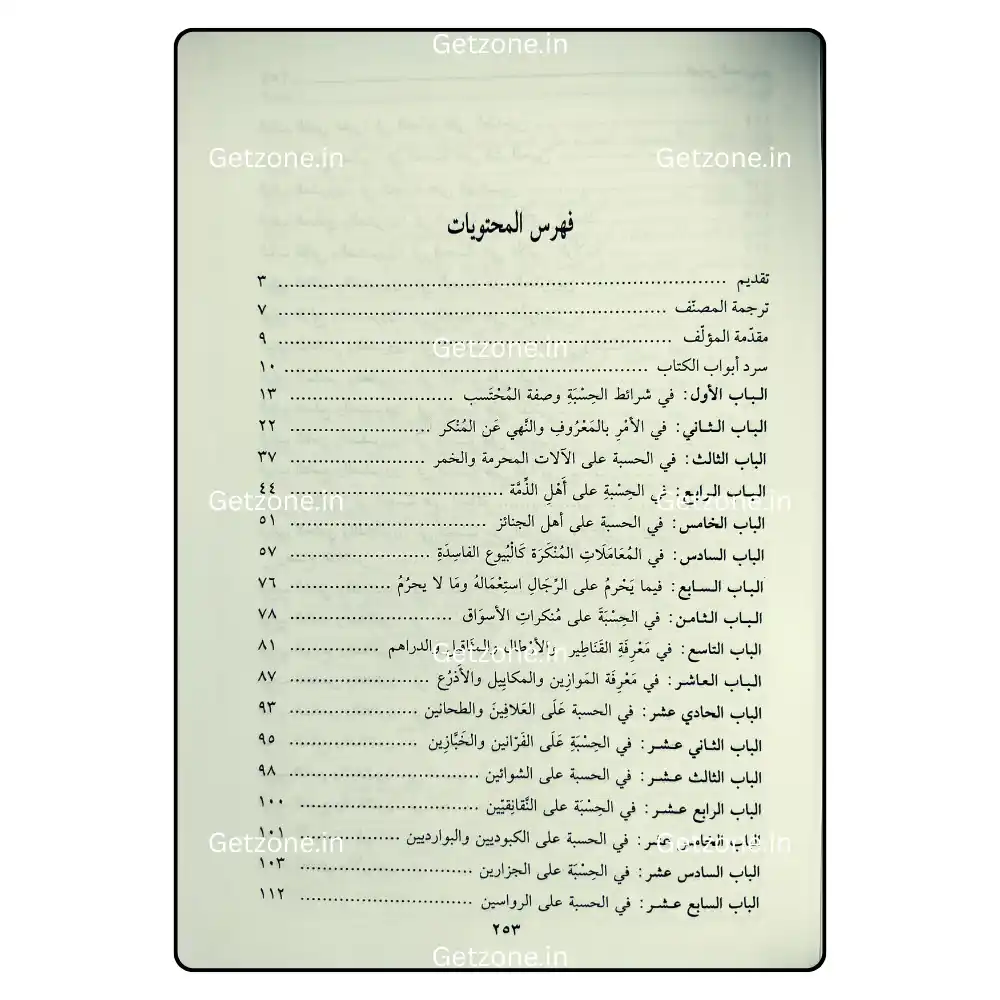 Getzone.in
Getzone.in Getzone.in
فهرس المحتويات
تقديم ........ ٣
ترجمة المصنّف ........ ٧
مقدّمة المؤلّف ........ ٩
Getzone.in
سرد أبواب الكتاب ........ ١٠
الباب الأول: في شرائط الحِسْبَةِ وصفة المُحْتَسب ........ ١٣
الباب الثاني: في الأمْرِ بالمَعْرُوفِ والنَّهي عَن المُنْكر ........ ٢٢
الباب الثالث: في الحسبة على الآلات المحرمة والخمر ........ ٣٧
الباب الرابع: في الحِسْبةِ على أَهْلِ الذِّمَّة ........ ٤٤
Getzone.in Getzone.in
الباب الخامس: في الحسبة على أهل الجنائز ........ ٥١
الباب السادس: في المُعَامَلَاتِ المُنْكَرَة كَالْبُيوع الفاسِدَةِ ........ ٥٧
الباب السابع: فيما يَحْرمُ على الرِّجَالِ استِعْمَالهُ ومَا لا يحرُمُ ........ ٧٦
الباب الثامن: في الحِسْبَةَ على مُنكراتِ الأسوَاق ........ ٧٨
الباب التاسع: في مَعْرِفَةِ القَنَاطِير والأرْطال والمثَاقِيل والدراهم ........ ٨١
Getzone.in
الباب العاشر: في مَعْرِفَة المَوازِين والمكاييل والأَذرُع ........ ٨٧
الباب الحادي عشر: في الحسبة عَلَى العَلافِينَ والطحانين ........ ٩٣
الباب الثاني عشر: في الحِسْبَةِ عَلَى الفَرّانين والخَبَّازِين ........ ٩٥
الباب الثالث عشر: في الحسبة على الشوائين ........ ٩٨
الباب الرابع عشر: في الحِسْبَة على النَّقانِقيّين ........ ١٠٠
الباب الخامس عشر: في الحسبة على الكبوديين والبوارديين ........ ١٠١
Getzone.in Getzone.in
الباب السادس عشر: في الحِسْبَة على الجزارين ........ ١٠٣
الباب السابع عشر: في الحسبة على الرواسين ........ ١١٢
٢٥٣
Getzone.in